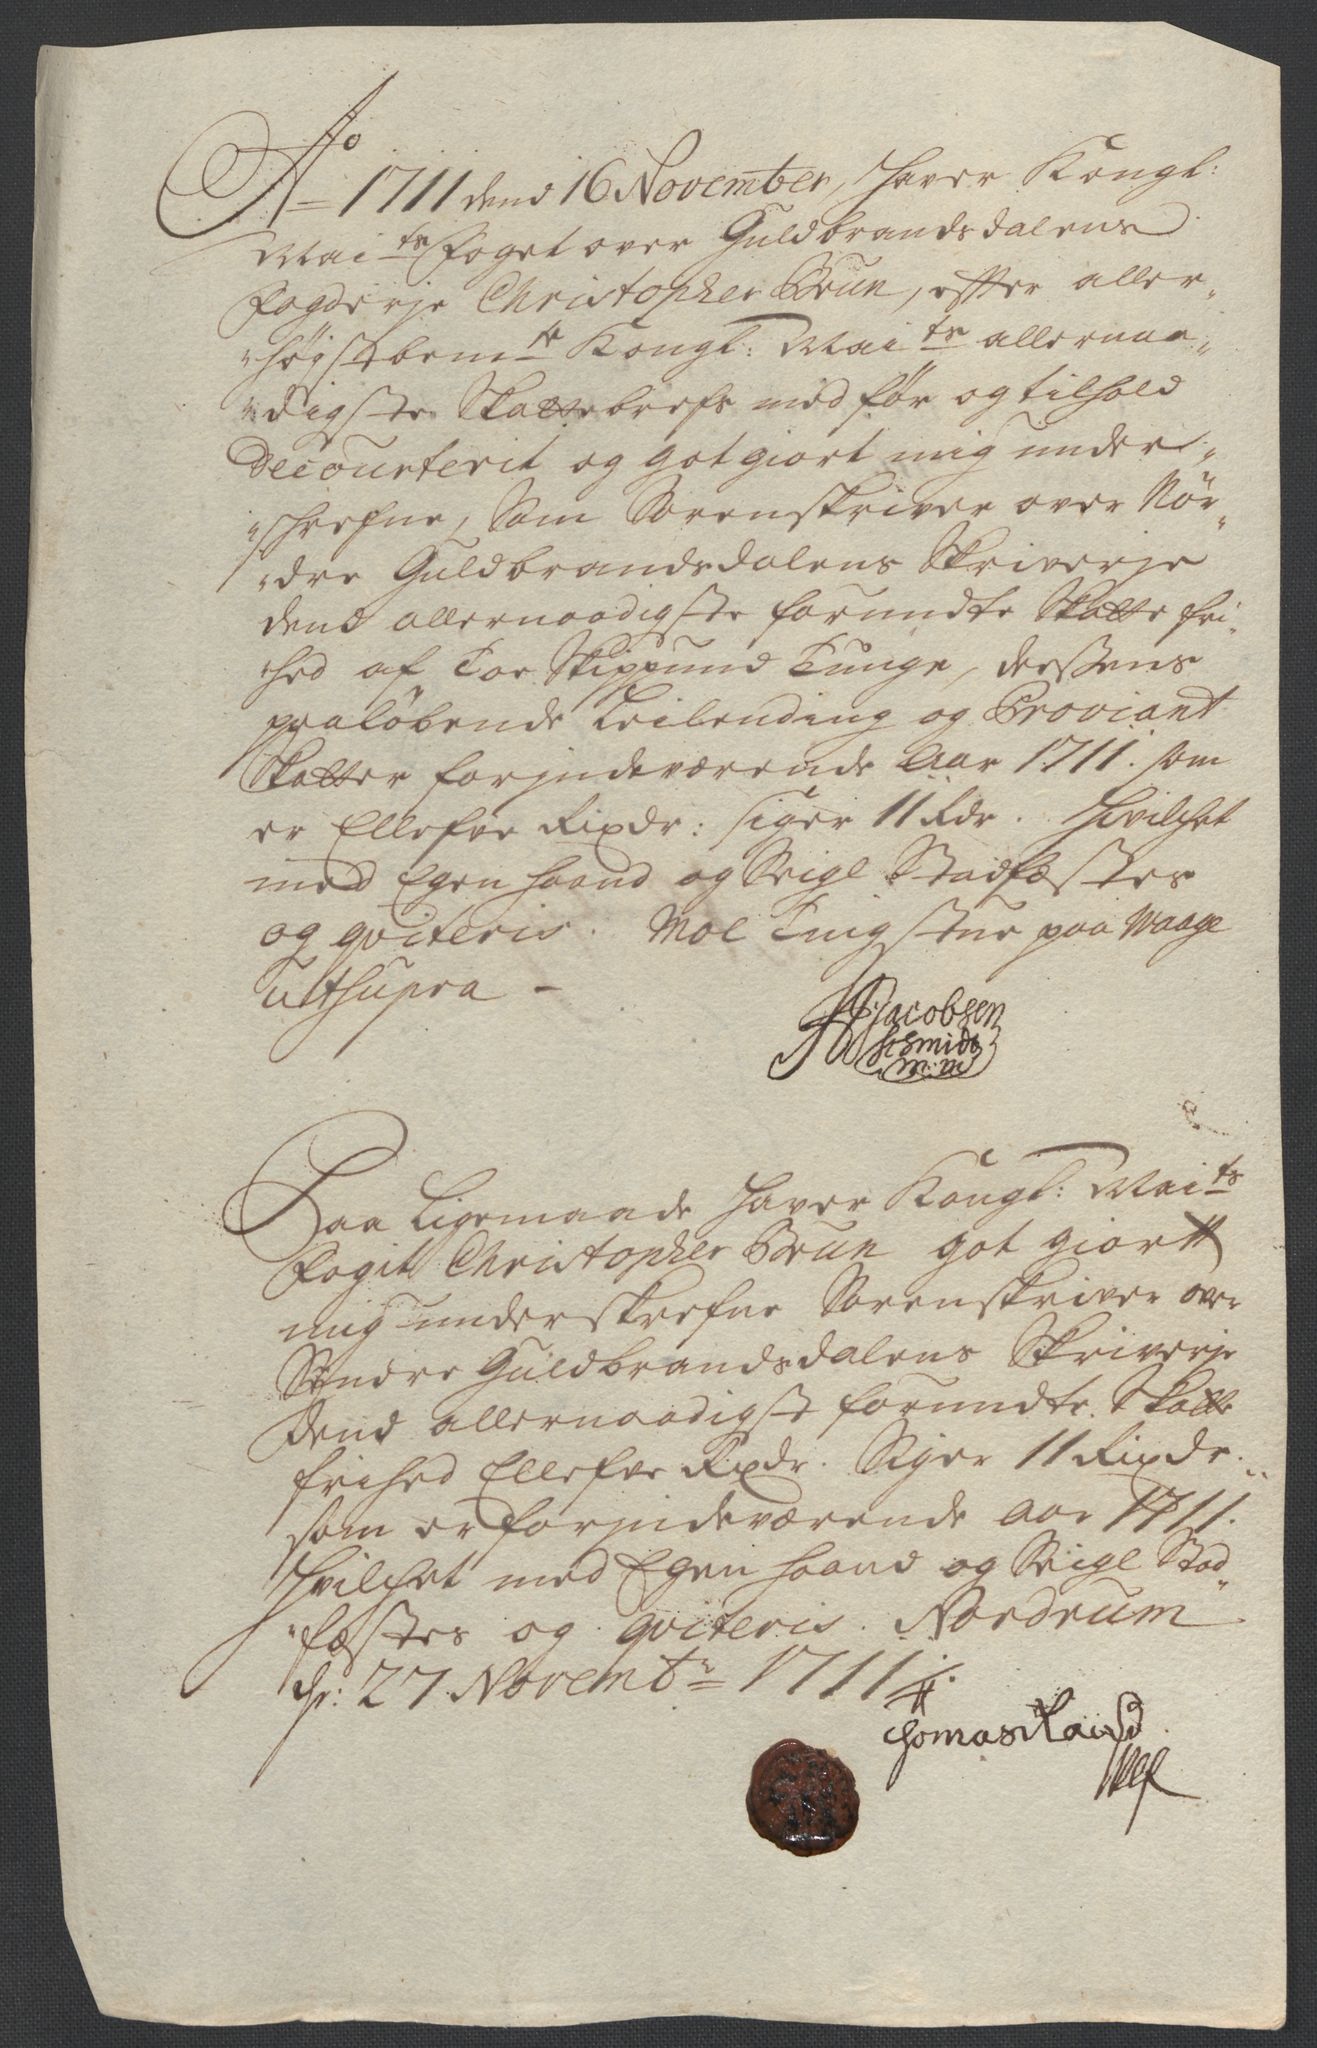 Ao 1711 dend 16 November, Haver Kongl:
Mai ts foget over Guldbrandsdalens
fogderje Christopher Brun, efter aller-
høystbem te Kongl: Mai ts allernaa-
digste Skattebrefs medfør og tilhold
Decourterit og got giort mig under-
schrefne, Som Sorenskriver over Nør-
dre Guldbrandsdalens Skriverje
dend allernaadigste forundte Skatte fri-
hed af Toe Skippund Tunge, dessens
paaløbende Leilending og Proviant
Skatter for jndeværende Aar 1711. som
er Ellefve Rixdr: siger 11 Rdr. Hvilchet
med Egen haand og Seigl Stadfæstes
og qviteris. Moe Tingstue paa Waage
ut supra -
Jacobsen
Schmidt
m.m
Paa Ligemaade haver Kongl: Mai ts
fogit Christopher Brun got giortt
mig underskrefne Sorenskriver over
Søndre Guldbrandsdalens Skriverje
dend allernaadigst forundte Skatte
frihed Ellefve Rixdr. Siger 11 Rixdr.
som er for jndeværende Aar 1711.
Hvilchet med Egen haand og Seigl Stad-
fæstes og qviteris. Nordrum
d: 27 Novembr 1711.
Thomas